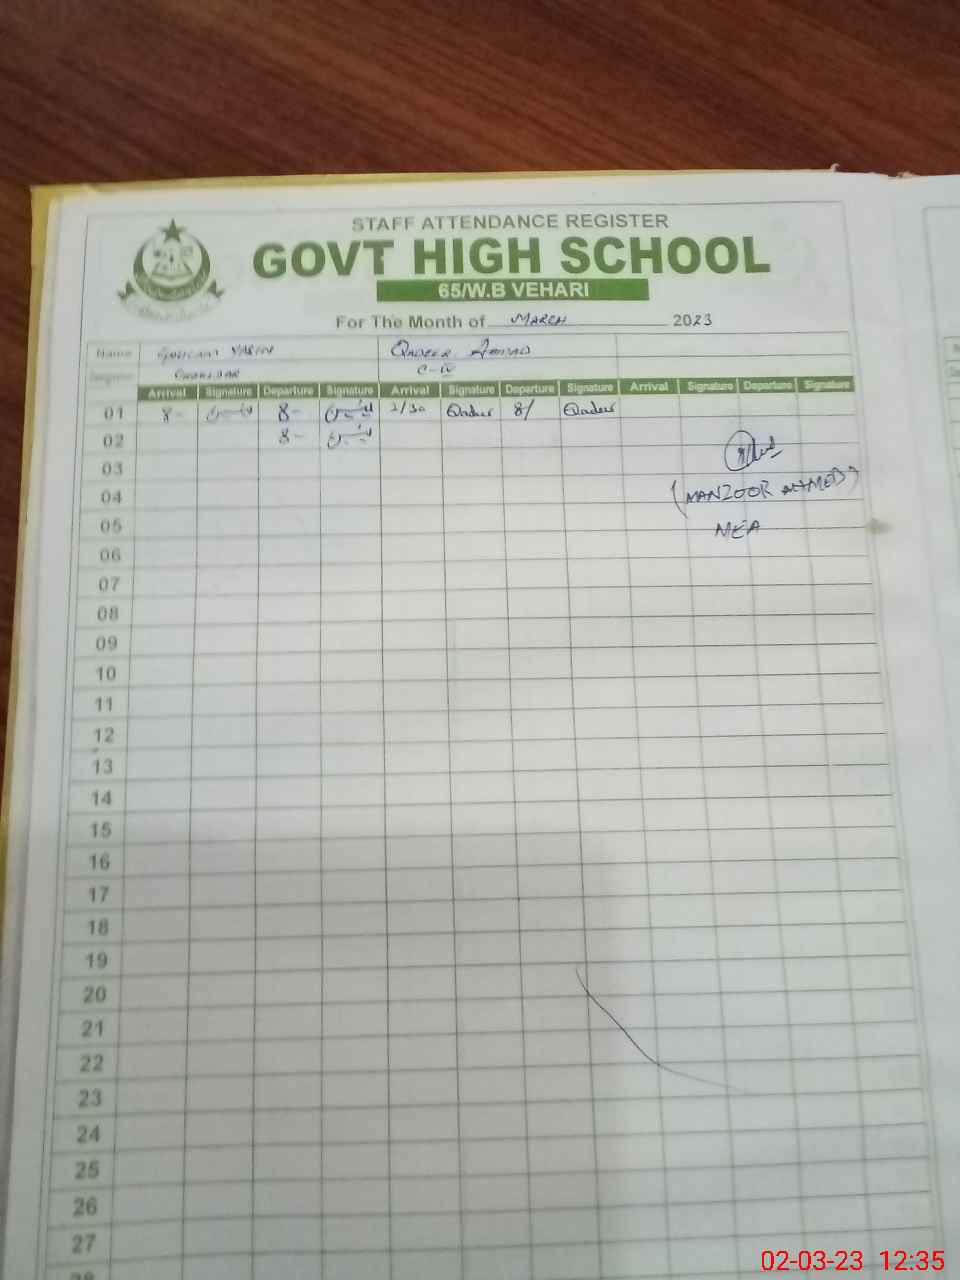 STAFF ATTENDANCE REGISTER
GOVT HIGH SCHOOL
65/W.B VEHARI
For The Month of MARCH 2023
Name GHULAM YASIN QADEER AHMAD
CHOKIDAR C-IV
Arrival Signature Departure Signature Arrival Signature Departure Signature Arrival Signature Departure Signature
01 8- یٰسین 8- یٰسین 7/30 Qadeer 8/ Qadeer
02 8- یٰسین
03
04 (MANZOOR AHMED)
05 MEA
06
07
08
09
10
11
12
13
14
15
16
17
18
19
20
21
22
23
24
25
26
27
28
02-03-23 12:35